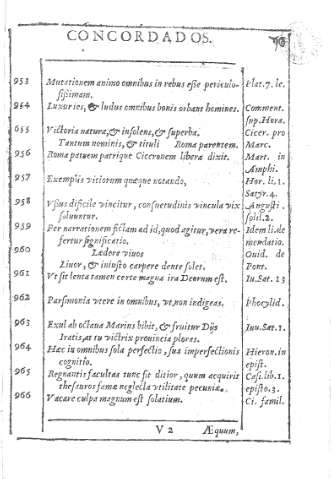 CONCORDADOS.
953 Mutationem animo omnibus in rebus esse periculo- Plat. 7. le.
sissimam.
954 Luxuries, & ludus omnibus bonis orbans homines. Comment.
sup. Hora.
655 Victoria natura, & insolens, & superba. Cicer. pro
Tantum nominis, & tituli Roma parentem. Marc.
956 Roma patrem patrique Ciceronem libera dixit. Mart. in
Amphi.
957 Exemplis vitiorum quæque notando, Hor. li. 1.
Satyr. 4.
958 Vsus dificile vincitur, consuetudinis vincula vix Augusti.
soluuntur. solil. 2.
959 Per narrationem fictam ad id, quod agitur, vera re- Idem li. de
fertur significatio. mendatio.
960 Lædere viuos Ouid. de
Liuor, & iniusto carpere dente solet. Pont.
961 Vt sit lenta tamen certe magna ira Deorum est. Iu. Sat. 13
962 Parsmonia vtere in omnibus, vt, non indigeas. Phocylid.
963 Exul ab octaua Marius bibit, & fruitur Dijs Iuu. Sat. 1.
Iratis, at tu victrix prouincia ploras.
964 Hæc in omnibus sola perfectio, suæ imperfectionis Hieron. in
cognitio. epist.
965 Regnantis facultas tunc fit ditior, quum acquirit Casi. lib. 1.
thesauros famæ neglecta vtilitate pecuniæ. episto. 3.
966 Vacare culpa magnum est solatium. Ci. famil.
V 2 Æquum,